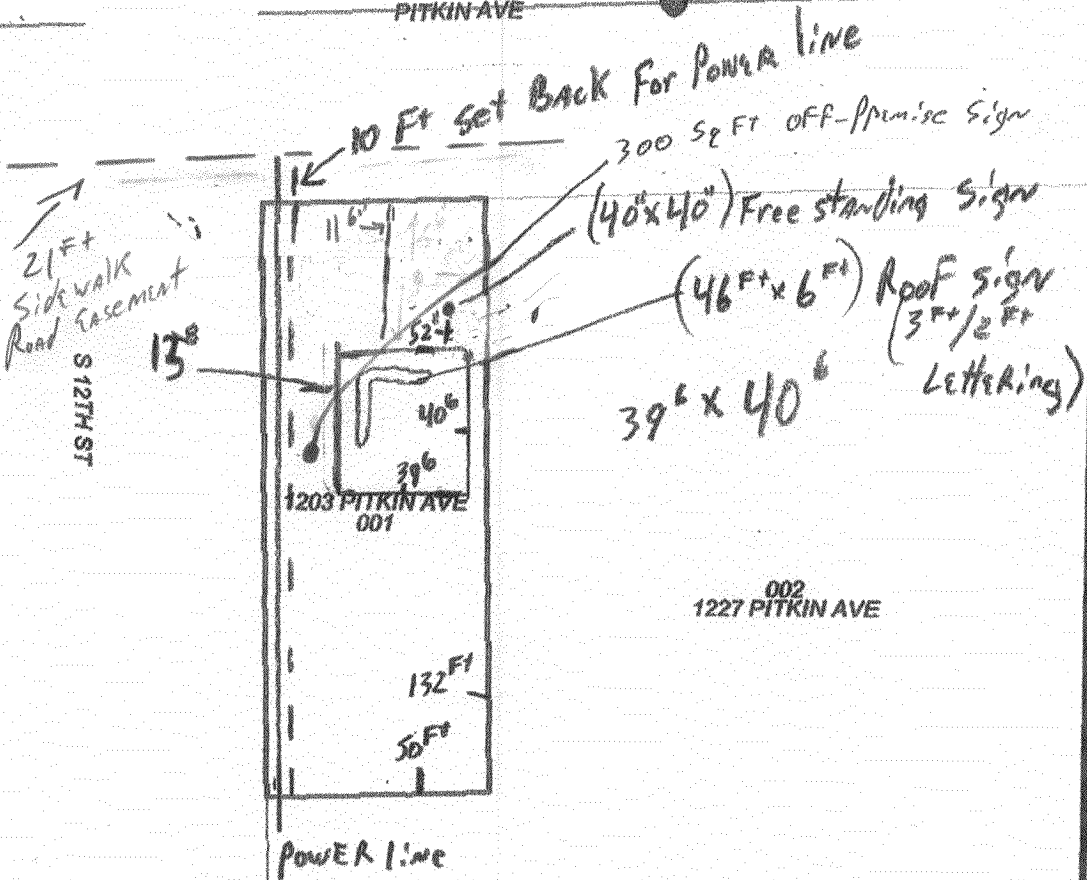 PITKIN AVE
10 Ft Set Back For Power line
300 Sq Ft Off-Premise Sign
(40"x40") Free standing Sign
(46Ft x 6Ft) Roof Sign
(3Ft/2Ft
Lettering)
21Ft
Sidewalk
Road Easement
13⁸
S 12TH ST
52"
40⁶
39⁶
39⁶ x 40⁶
1203 PITKIN AVE
001
002
1227 PITKIN AVE
132Ft
50Ft
Power line